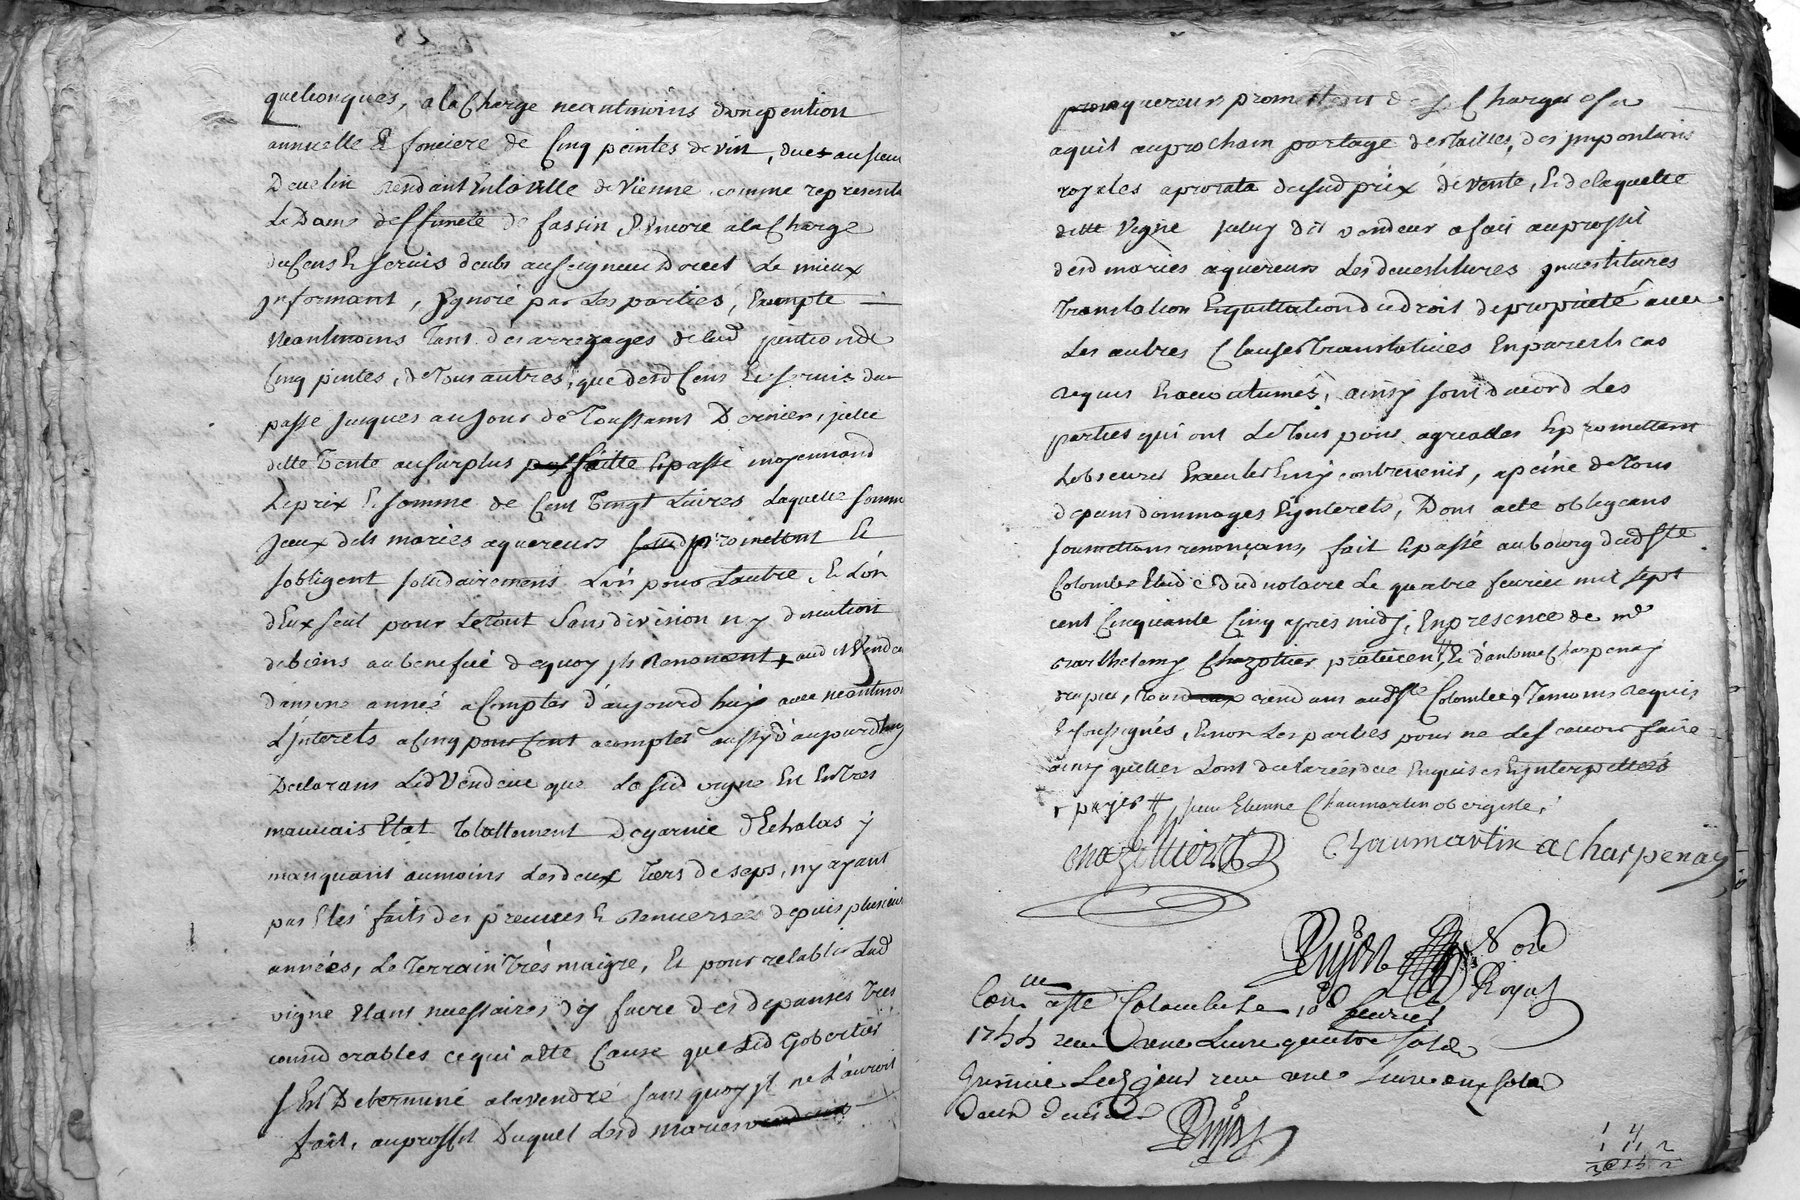 quelconques, a la Charge neantmoins d'une pention
annuelle & fonciere de Cinq peintes de vin, dues au sieur
Develin rendant En la ville de Vienne comme representa
la Dame deffuncte de fassin, & Encore a la Charge
du Cens & servis deubs au seigneur Direct le mieux
Informant, Ignoré par les parties, Exempte
Neantmoins Tant des arrerages de lad pention de
Cinq pintes, de tous autres, que desd Cens & servis du
passé jusques au Jour de Toussaint Dernier, jcelle
ditte Vente au surplus faitte & passé moyennand
Le prix & somme de Cent Vingt Livres Laquelle somme
Jceux dits mariés aquereurs promettent &
sobligent sollidairement L'un pour L'autre, & L'un
d'Eux seul pour Le tout Sans division ny discution
de biens au benefice de quoy ils Renoncent + aud Vende
dans une année a Compter d'aujourd huy avec neantmo
L'Jnterets a cinq pour Cent a compter aussy d'aujourdhuy
Declarans Led Vendeur que La sud vigne Est En Tres
mauvais Etat Totallement Degarnie d'Echalas y
manquant au moins Les deux Tiers de seps, n'y ayant
pas Etés faits des preuves & Renversées depuis plusieur
années, Le Terrain Trés maigre, Et pour retablir Lad
vigne Etant necessaires d'y faire des depances Tres
considerables ce qui a été Cause que Led Gobertier
s'Est Determiné a la vendre sans quoy jl ne L'auroit
fait, au proffit Duquel Lesd mariés
aquereurs promettent de se Charger a sa
aquit au prochain partage des tailles, des Impositions
royales a prorata du sud prix de vente, & de laquelle
ditte Vigne jceluy dit vendeur a fait au proffit
desd mariés aquereurs Les devestitures Investitures
Translation & quittation du droit de proprieté avec
Les autres Clauses Translatives En pareils cas
requis & accoutumés, ainsy sont d'acord Les
parties qui ont Le tous pour agreables & promettent
L'observer Executer & n'y contrevenir, a peine de tous
depans dommages & Jnterets, Dont acte obligeans
soumettans renonçans, fait & passé au bourg dud Ste
Colombe Etude dud notaire Le quatre fevrier mil sept
cent Cinquante Cinq apres midy, En presence de mr
barthelemy Chazottier praticien # & d'antoine Charpenay
drapier, residans aud Ste Colombe, Temoins Requis
& soussignés, & non Les parties pour ne Le scavoir faire
ainsy qu'elles L'ont declarées de ce Enquises & Jnterpellées
+ payer # sieur Etienne Chaumartin obergiste,
Chazottier Chaumartin a Charpenay
Nore
Royal
Conlle a Ste Colombe Le 18 fevrier
1755 receu une Livre quatre sols
Jnsinué Led jour receu une Livre onze sols
deux deniers
1 4
1 11 2
2 15 2